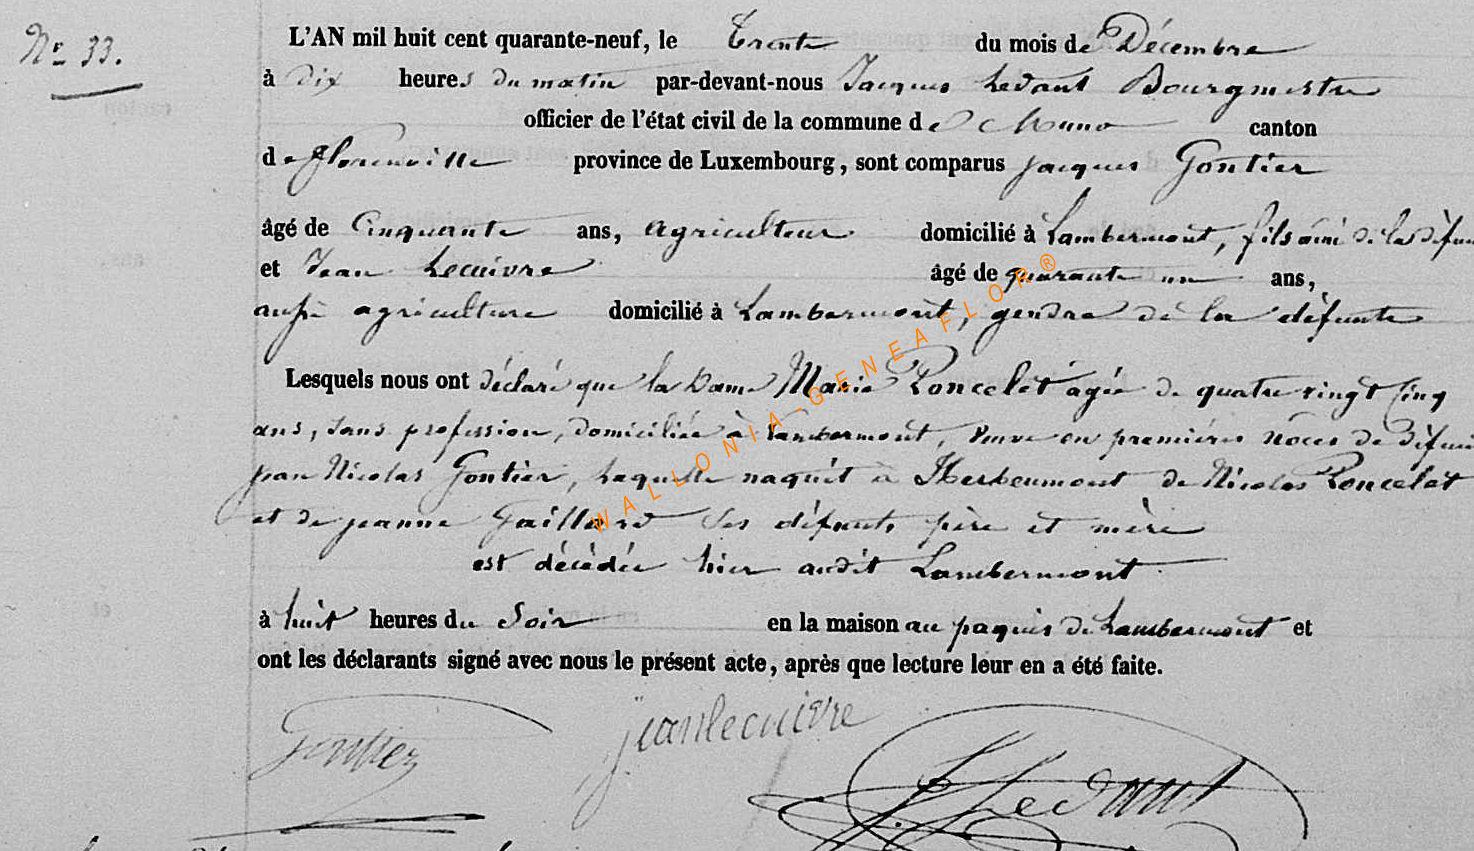 Nr 33.
L'AN mil huit cent quarante-neuf, le Trente du mois de Décembre
à dix heures du matin par-devant-nous Jacques Ledant Bourgmestre
officier de l'état civil de la commune de Muno canton
de Florenville province de Luxembourg, sont comparus jacques Gontier
âgé de Cinquante ans, agriculteur domicilié à Lambermont, fils ainé de la défun
et Jean Lecuivre âgé de quarante un ans,
aussi agriculteur domicilié à Lambermont, gendre de la défunte
Lesquels nous ont déclaré que la Dame Marie Poncelet agée de quatre vingt Cinq
ans, sans profession, domiciliée à Lambermont, Veuve en premières noces de défun
pan Nicolas Gontier, laquelle naquit à Herbeumont de Nicolas Poncelet
et de jeanne Gaillard Ses défunts père et mère
est décédée hier audit Lambermont
à huit heures du Soir en la maison au paquis de Lambermont et
ont les déclarants signé avec nous le présent acte, après que lecture leur en a été faite.
Gontier jean lecuivre J Ledant
WALLONIA-GENEAFLOR®